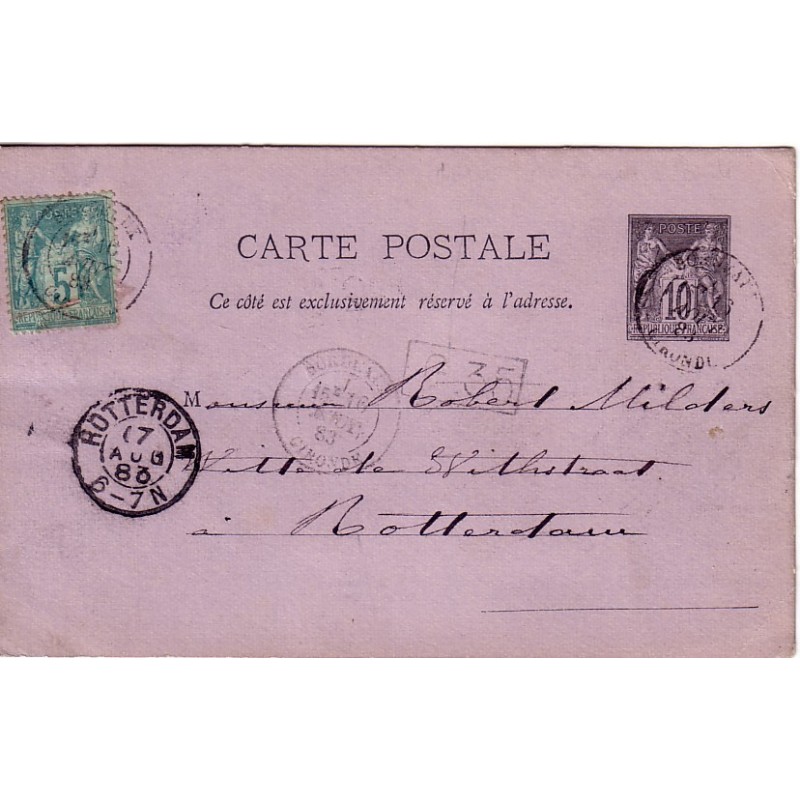 POSTE
5
REPUBLIQUE FRANÇAISE
CARTE POSTALE
Ce côté est exclusivement réservé à l'adresse.
POSTE
10
REPUBLIQUE FRANÇAISE
GIRONDE
BORDEAUX
83
GIRONDE
ROTTERDAM
17
AUG
83
6-7N
Monsieur Robert Milders
Witte de Withstraat
à Rotterdam